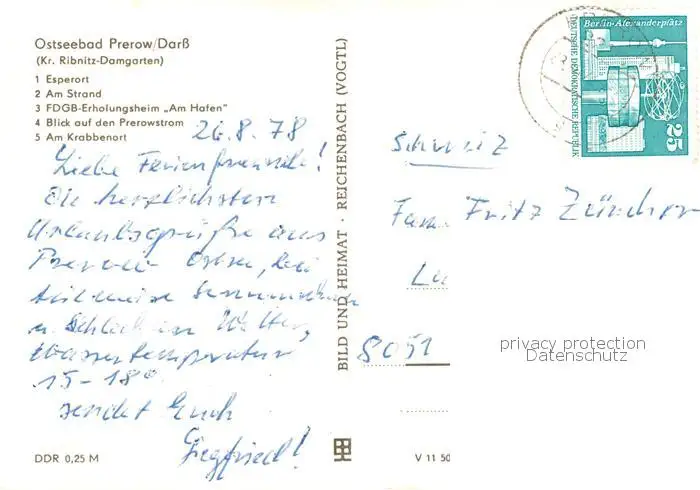 Ostseebad Prerow/Darß
(Kr. Ribnitz-Damgarten)
1 Esperort
2 Am Strand
3 FDGB-Erholungsheim „Am Hafen"
4 Blick auf den Prerowstrom
5 Am Krabbenort
26.8.78
Liebe Ferienfreunde!
Die herzlichsten
Urlaubsgrüße aus
Prerow Ostsee, bei
teilweise
u. Wetter,
Wassertemperatur
15-18°
sendet Euch
Siegfried!
DDR 0,25 M
BILD UND HEIMAT · REICHENBACH (VOGTL)
V 11 50
Berlin-Alexanderplatz
DEUTSCHE DEMOKRATISCHE REPUBLIK
25
Schweiz
Fam. Fritz Züricher
Lu
8051
privacy protection
Datenschutz